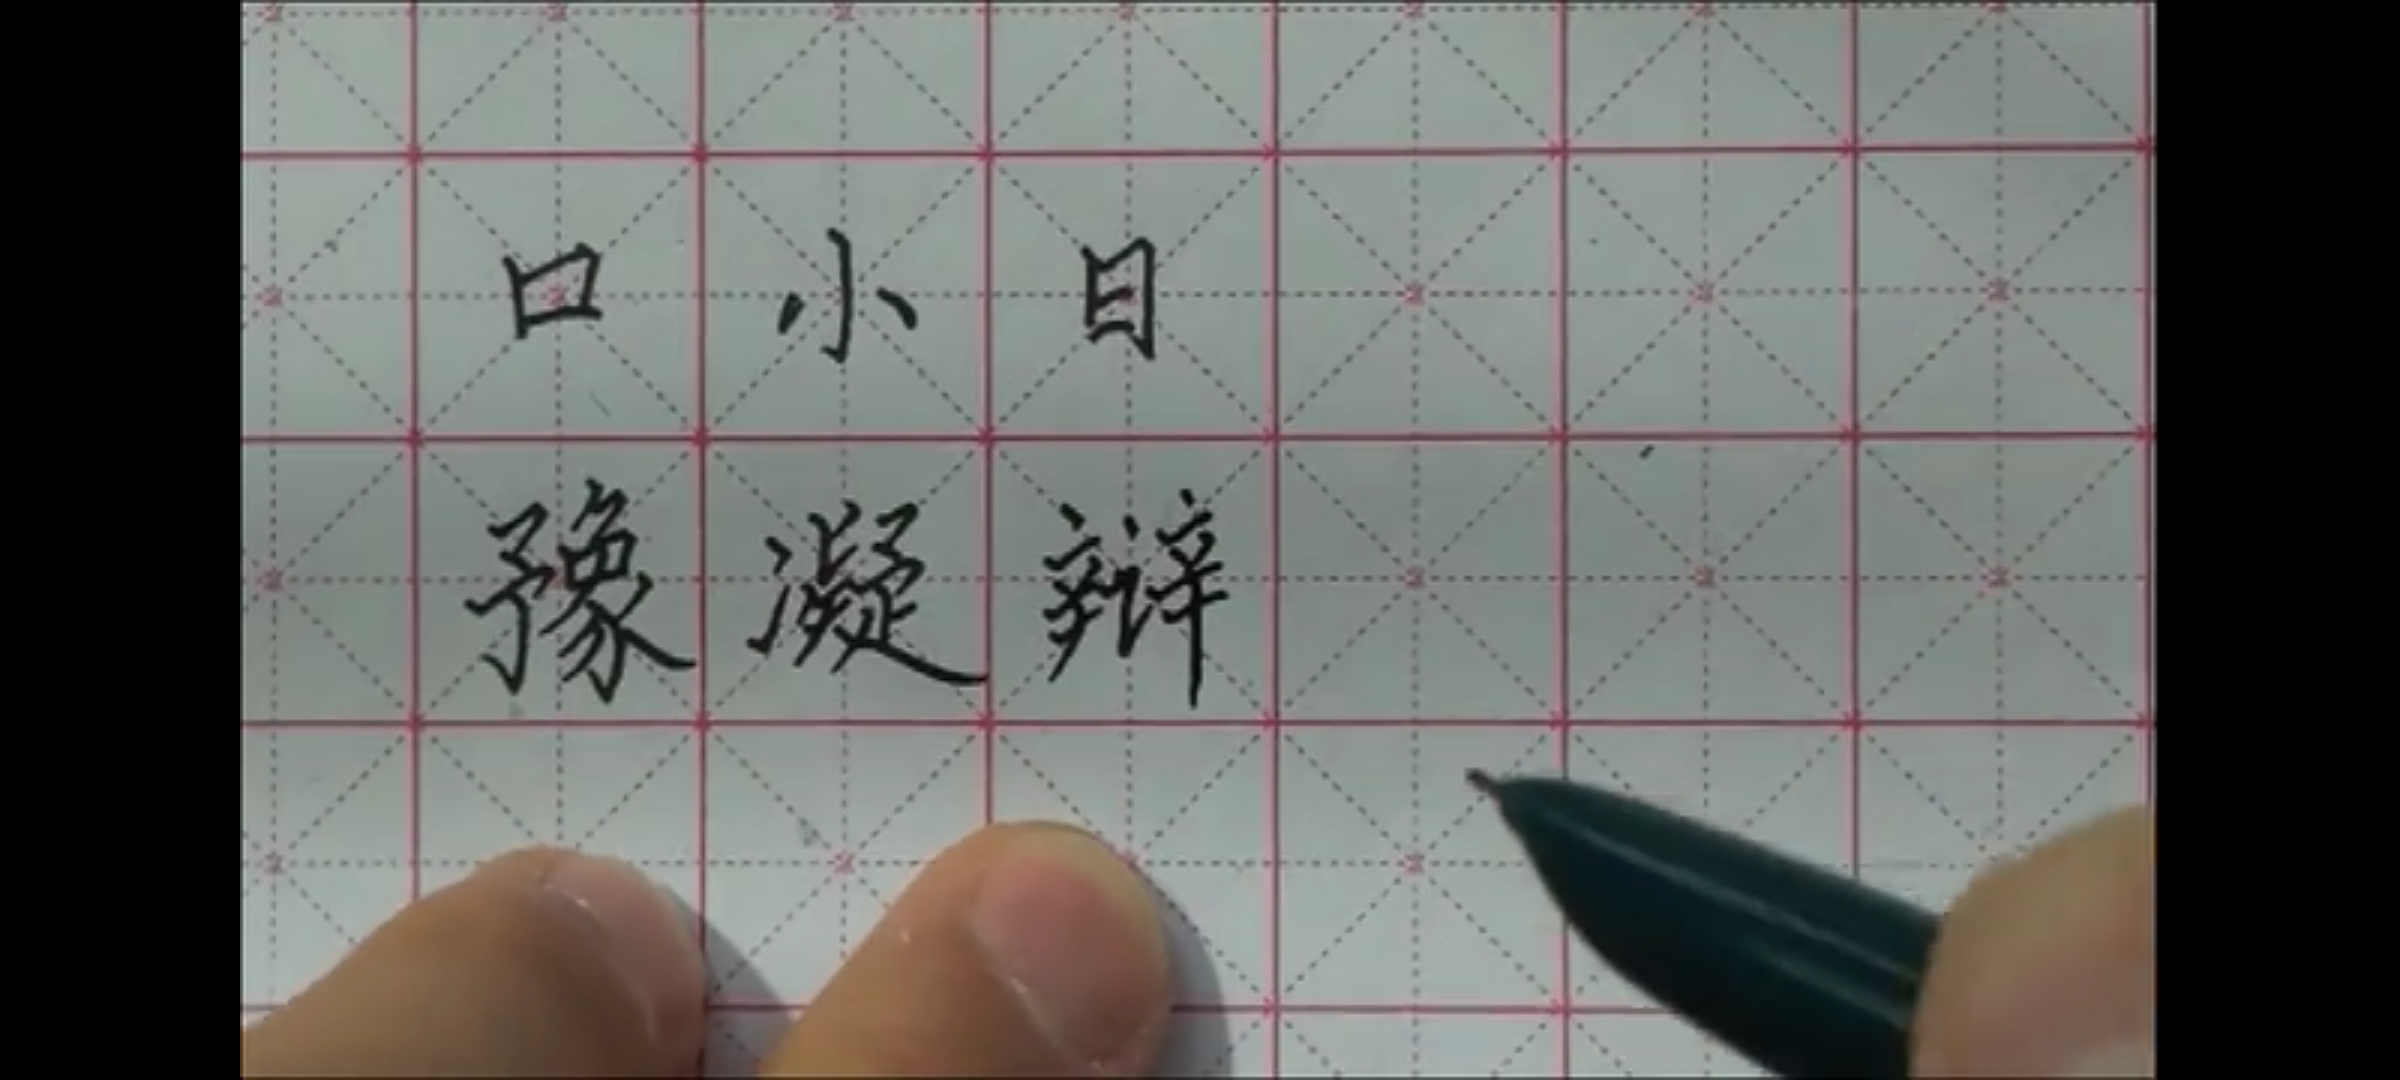 口小日
豫凝辩